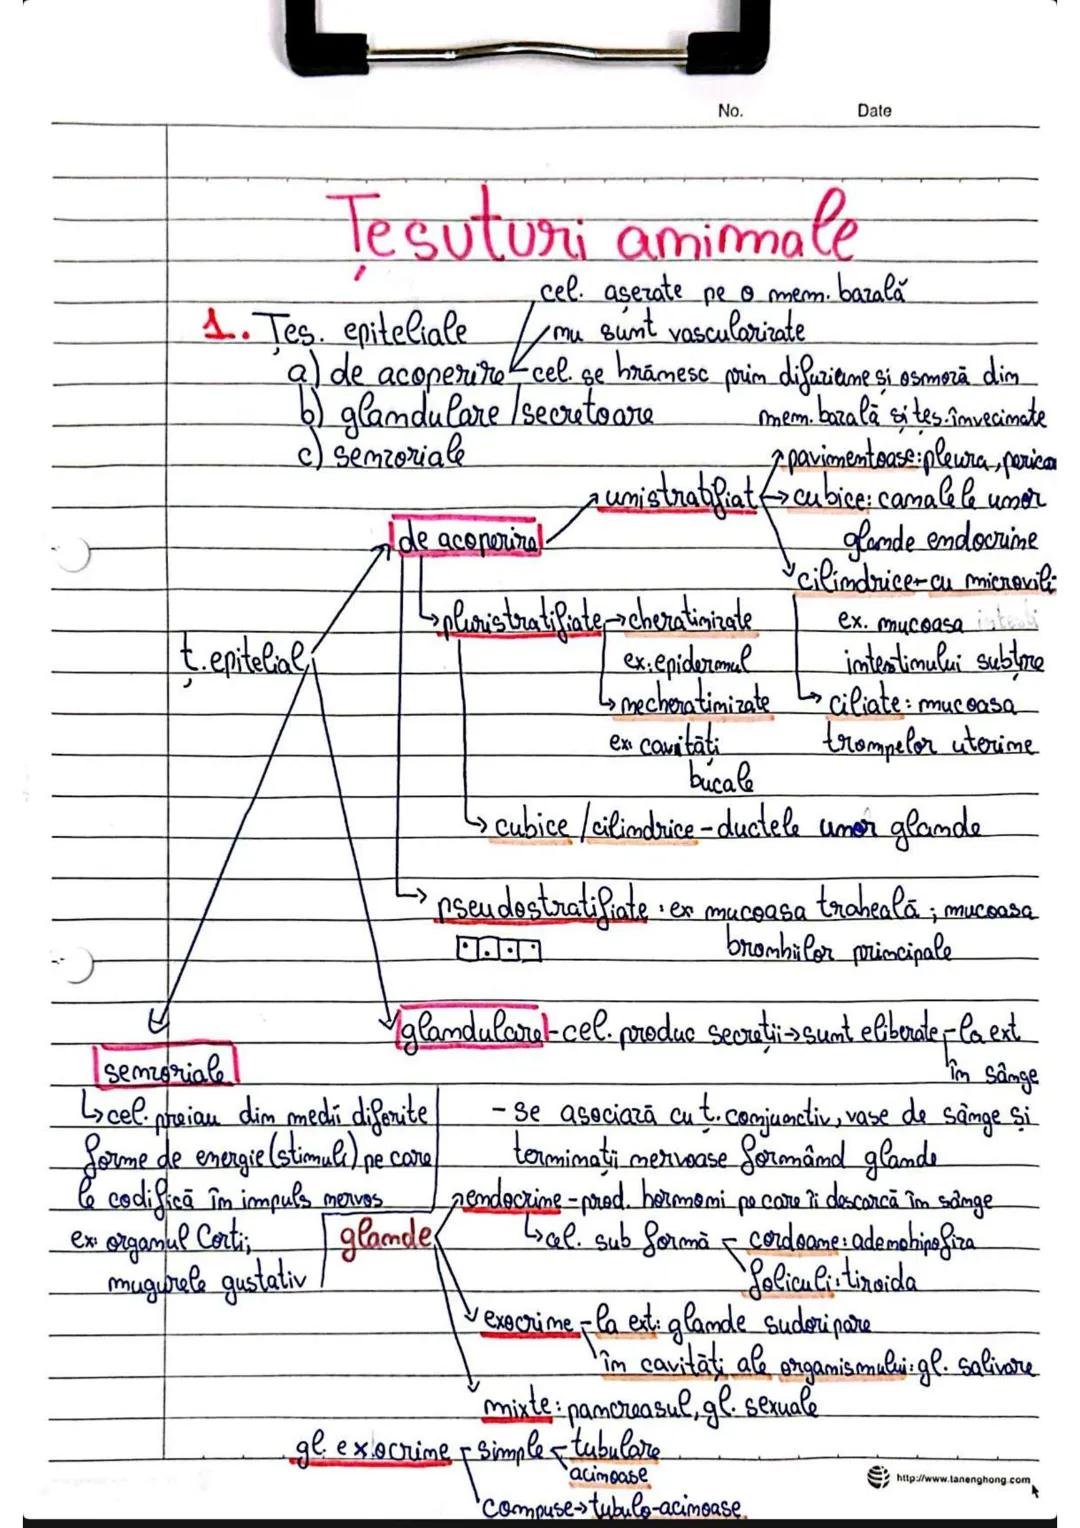 No. Date
Țesuturi animale
cel. așezate pe o mem. bazală
1. Țes. epiteliale
nu sunt vascularizate
a) de acoperire - cel. se hrănesc prin difuziune și osmoză din
b) glandulare / secretoare mem. bazală și țes. învecinate
c) senzoriale
pavimentoase: pleura, perica
unistratifiat → cubice: canalele unor
de acoperire glande endocrine
cilindrice - cu microvili:
pluristratifiate → cheratinizate ex. mucoasa
ț. epitelial ex: epidermul intestinului subțire
necheratinizate ciliate: mucoasa
ex cavități trompelor uterine
bucale
cubice / cilindrice - ductele unor glande
pseudostratifiate: ex mucoasa traheală; mucoasa
bronhiilor principale
glandulare - cel. produc secreții → sunt eliberate - la ext
senzoriale în sânge
cel. preiau din medii diferite - se asociază cu ț. conjunctiv, vase de sânge și
forme de energie (stimuli) pe care terminații nervoase formând glande
le codifică în impuls nervos endocrine - prod. hormoni pe care îi descarcă în sânge
ex: organul Corti; glande cel. sub formă cordoane: adenohipofiza
mugurele gustativ foliculi: tiroida
exocrine - la ext: glande sudoripare
în cavități ale organismului: gl. salivare
mixte: pancreasul, gl. sexuale
gl. exocrine simple tubulare
acinoase
http://www.tanenghong.com
compuse → tubulo-acinoase